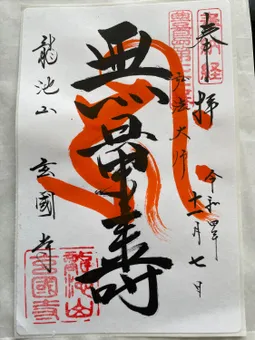 奉拝
令和四年十一月七日
弘法大師
無量壽
龍池山 玄國寺
龍池山
玄國寺